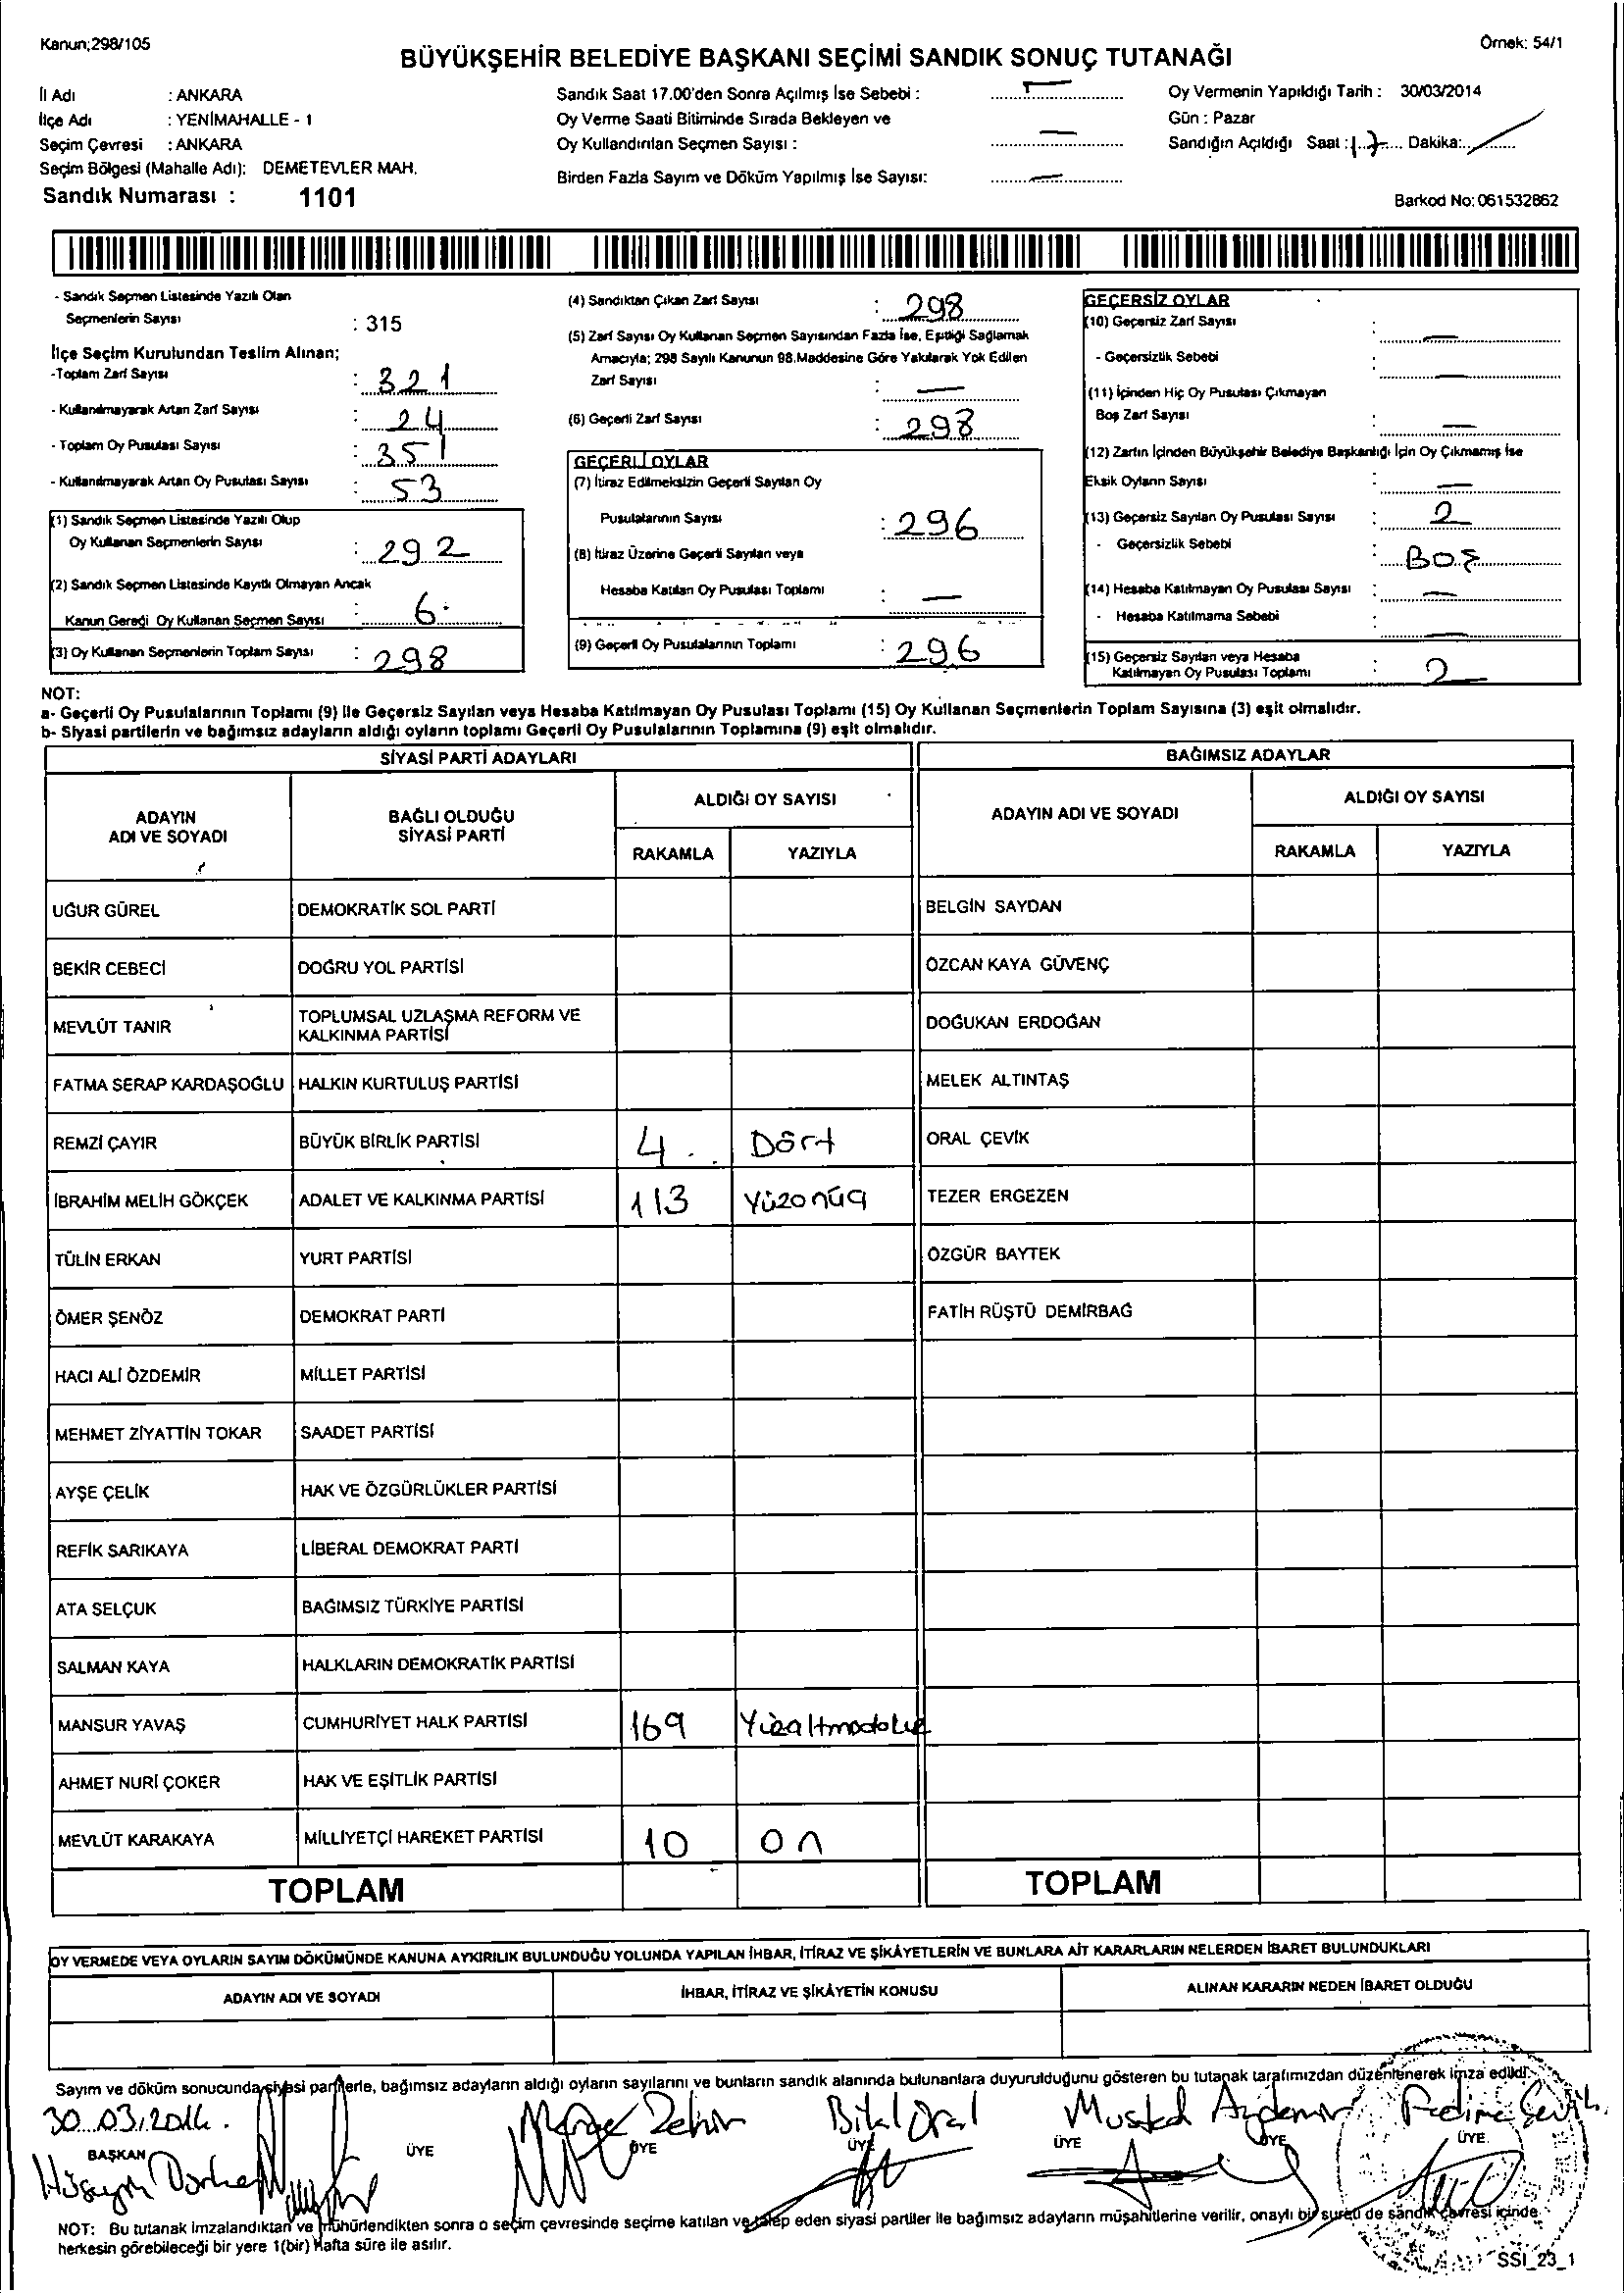 Kanun;298/105
Örnek: 54/1
BÜYÜKŞEHİR BELEDİYE BAŞKANI SEÇİMİ SANDIK SONUÇ TUTANAĞI
İl Adı : ANKARA
İlçe Adı : YENİMAHALLE - 1
Seçim Çevresi : ANKARA
Seçim Bölgesi (Mahalle Adı): DEMETEVLER MAH.
Sandık Numarası : 1101
Sandık Saat 17.00'den Sonra Açılmış İse Sebebi :
Oy Verme Saati Bitiminde Sırada Bekleyen ve
Oy Kullandırılan Seçmen Sayısı :
Birden Fazla Sayım ve Döküm Yapılmış İse Sayısı:
Oy Vermenin Yapıldığı Tarih : 30/03/2014
Gün : Pazar
Sandığın Açıldığı Saat : 17 Dakika:
Barkod No: 061532862
- Sandık Seçmen Listesinde Yazılı Olan
Seçmenlerin Sayısı : 315
İlçe Seçim Kurulundan Teslim Alınan;
-Toplam Zarf Sayısı : 321
- Kullanılmayarak Artan Zarf Sayısı : 24
- Toplam Oy Pusulası Sayısı : 351
- Kullanılmayarak Artan Oy Pusulası Sayısı : 53
(1) Sandık Seçmen Listesinde Yazılı Olup
Oy Kullanan Seçmenlerin Sayısı : 292
(2) Sandık Seçmen Listesinde Kayıtlı Olmayan Ancak
Kanun Gereği Oy Kullanan Seçmen Sayısı : 6
(3) Oy Kullanan Seçmenlerin Toplam Sayısı : 298
(4) Sandıktan Çıkan Zarf Sayısı : 298
(5) Zarf Sayısı Oy Kullanan Seçmen Sayısından Fazla İse, Eşitliği Sağlamak
Amacıyla; 298 Sayılı Kanunun 98.Maddesine Göre Yakılarak Yok Edilen
Zarf Sayısı : —
(6) Geçerli Zarf Sayısı : 298
GEÇERLİ OYLAR
(7) İtiraz Edilmeksizin Geçerli Sayılan Oy
Pusulalarının Sayısı : 296
(8) İtiraz Üzerine Geçerli Sayılan veya
Hesaba Katılan Oy Pusulası Toplamı : —
(9) Geçerli Oy Pusulalarının Toplamı : 296
GEÇERSİZ OYLAR
(10) Geçersiz Zarf Sayısı : —
- Geçersizlik Sebebi : —
(11) İçinden Hiç Oy Pusulası Çıkmayan
Boş Zarf Sayısı : —
(12) Zarfın İçinden Büyükşehir Belediye Başkanlığı İçin Oy Çıkmamış İse
Eksik Oyların Sayısı : —
(13) Geçersiz Sayılan Oy Pusulası Sayısı : 2
- Geçersizlik Sebebi : BOŞ
(14) Hesaba Katılmayan Oy Pusulası Sayısı : —
- Hesaba Katılmama Sebebi : —
(15) Geçersiz Sayılan veya Hesaba
Katılmayan Oy Pusulası Toplamı : 2
NOT:
a- Geçerli Oy Pusulalarının Toplamı (9) ile Geçersiz Sayılan veya Hesaba Katılmayan Oy Pusulası Toplamı (15) Oy Kullanan Seçmenlerin Toplam Sayısına (3) eşit olmalıdır.
b- Siyasi partilerin ve bağımsız adayların aldığı oyların toplamı Geçerli Oy Pusulalarının Toplamına (9) eşit olmalıdır.
SİYASİ PARTİ ADAYLARI
BAĞIMSIZ ADAYLAR
ADAYIN
ADI VE SOYADI
BAĞLI OLDUĞU
SİYASİ PARTİ
ALDIĞI OY SAYISI
RAKAMLA YAZIYLA
ADAYIN ADI VE SOYADI
ALDIĞI OY SAYISI
RAKAMLA YAZIYLA
UĞUR GÜREL DEMOKRATİK SOL PARTİ BELGİN SAYDAN
BEKİR CEBECİ DOĞRU YOL PARTİSİ ÖZCAN KAYA GÜVENÇ
MEVLÜT TANIR TOPLUMSAL UZLAŞMA REFORM VE
KALKINMA PARTİSİ DOĞUKAN ERDOĞAN
FATMA SERAP KARDAŞOĞLU HALKIN KURTULUŞ PARTİSİ MELEK ALTINTAŞ
REMZİ ÇAYIR BÜYÜK BİRLİK PARTİSİ 4 Dört ORAL ÇEVİK
İBRAHİM MELİH GÖKÇEK ADALET VE KALKINMA PARTİSİ 113 Yüzonüç TEZER ERGEZEN
TÜLİN ERKAN YURT PARTİSİ ÖZGÜR BAYTEK
ÖMER ŞENÖZ DEMOKRAT PARTİ FATİH RÜŞTÜ DEMİRBAĞ
HACI ALİ ÖZDEMİR MİLLET PARTİSİ
MEHMET ZİYATTİN TOKAR SAADET PARTİSİ
AYŞE ÇELİK HAK VE ÖZGÜRLÜKLER PARTİSİ
REFİK SARIKAYA LİBERAL DEMOKRAT PARTİ
ATA SELÇUK BAĞIMSIZ TÜRKİYE PARTİSİ
SALMAN KAYA HALKLARIN DEMOKRATİK PARTİSİ
MANSUR YAVAŞ CUMHURİYET HALK PARTİSİ 169
AHMET NURİ ÇOKER HAK VE EŞİTLİK PARTİSİ
MEVLÜT KARAKAYA MİLLİYETÇİ HAREKET PARTİSİ 10 On
TOPLAM TOPLAM
OY VERMEDE VEYA OYLARIN SAYIM DÖKÜMÜNDE KANUNA AYKIRILIK BULUNDUĞU YOLUNDA YAPILAN İHBAR, İTİRAZ VE ŞİKÂYETLERİN VE BUNLARA AİT KARARLARIN NELERDEN İBARET BULUNDUKLARI
ADAYIN ADI VE SOYADI İHBAR, İTİRAZ VE ŞİKÂYETİN KONUSU ALINAN KARARIN NEDEN İBARET OLDUĞU
Sayım ve döküm sonucunda siyasi partilerle, bağımsız adayların aldığı oyların sayılarını ve bunların sandık alanında bulunanlara duyurulduğunu gösteren bu tutanak tarafımızdan düzenlenerek imza edildi.
30.03.2014. Bilal Oral
BAŞKAN ÜYE ÜYE ÜYE ÜYE ÜYE ÜYE
Hüseyin
NOT: Bu tutanak imzalandıktan ve mühürlendikten sonra o seçim çevresinde seçime katılan ve talep eden siyasi partiler ile bağımsız adayların müşahitlerine verilir, onaylı bir sureti de sandık çevresi içinde
herkesin görebileceği bir yere 1(bir) Hafta süre ile asılır.
SSI_23_1